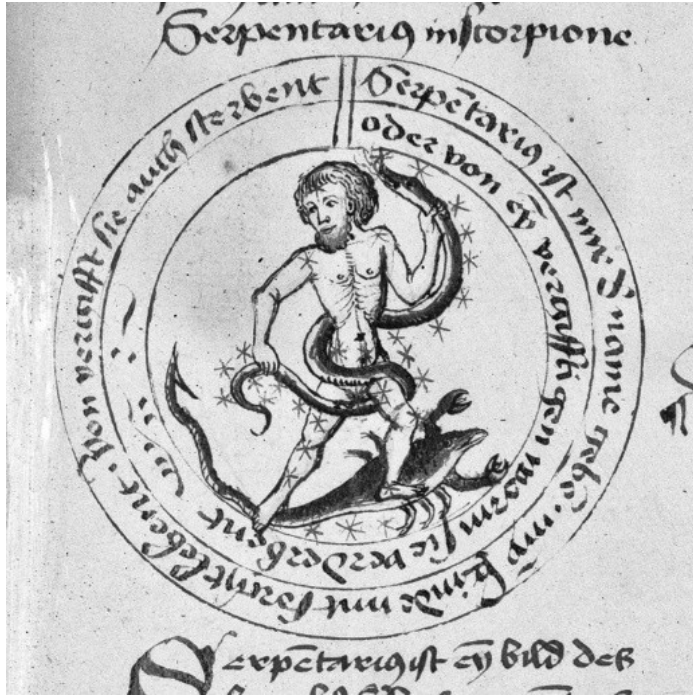 Serpentariꝯ in scorpione
Serpētariꝯ ist mir d' name gebē · my kinde mit sorgt lebent · Von vergifft sie auch sterbent
oder von ey vergifftigen worm sie verderbent
Serpētariꝯ ist ey bild des